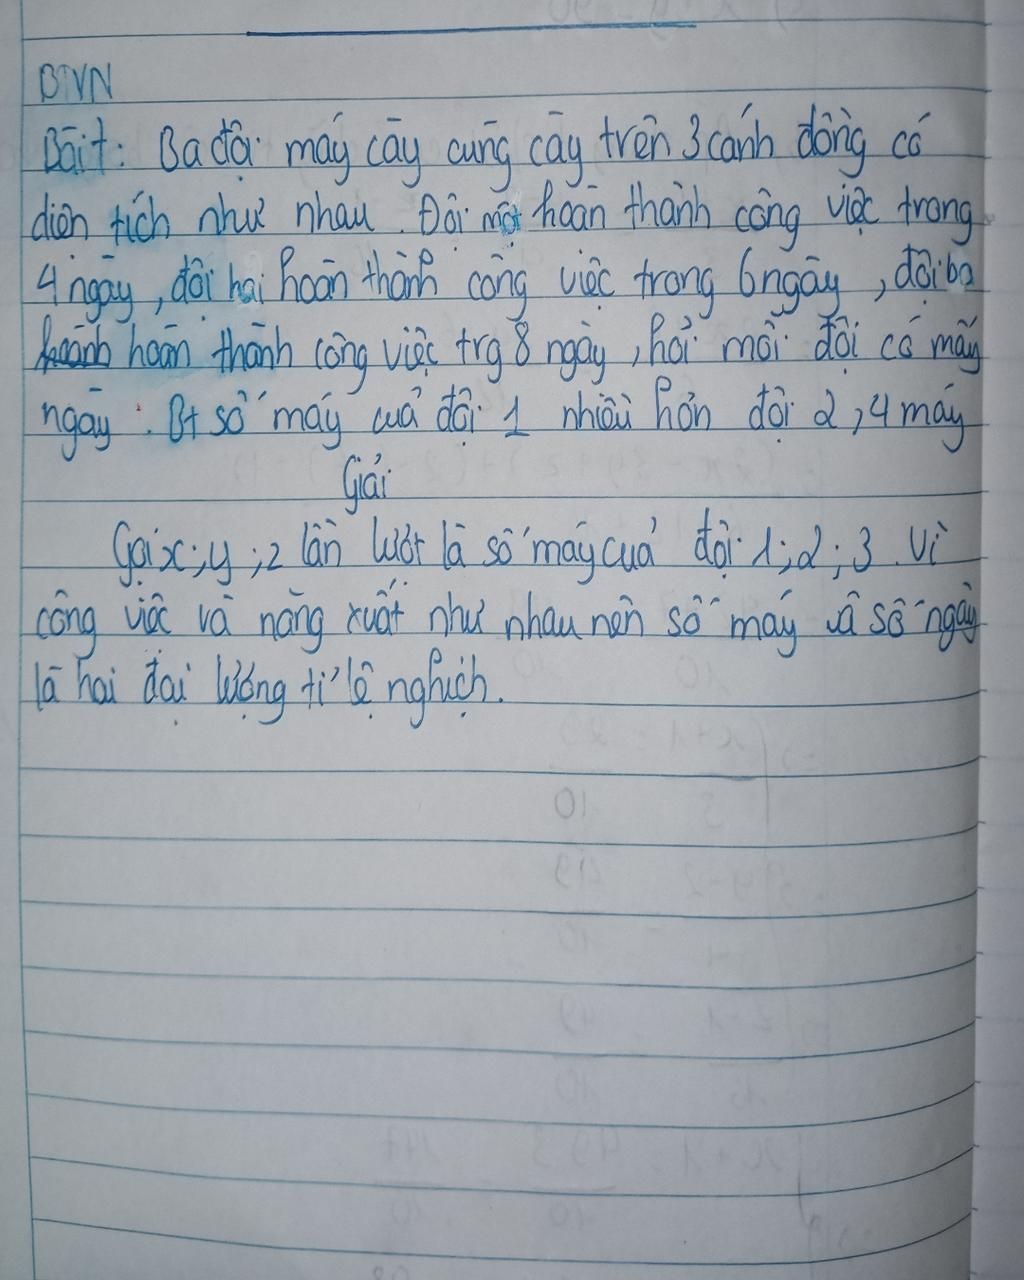 BTVN
Bài 1: Ba đội máy cày cùng cày trên 3 cánh đồng có
diện tích như nhau. Đội một hoàn thành công việc trong
4 ngày, đội hai hoàn thành công việc trong 6 ngày, đội ba
hoành hoàn thành công việc trg 8 ngày, hỏi mỗi đội có mấy
ngày. Bt số máy của đội 1 nhiều hơn đội 2, 4 máy
Giải
Gọi x; y; z lần lượt là số máy của đội 1; 2; 3. Vì
công việc và năng xuất như nhau nên số máy và số ngày
là hai đại lượng tỉ lệ nghịch.